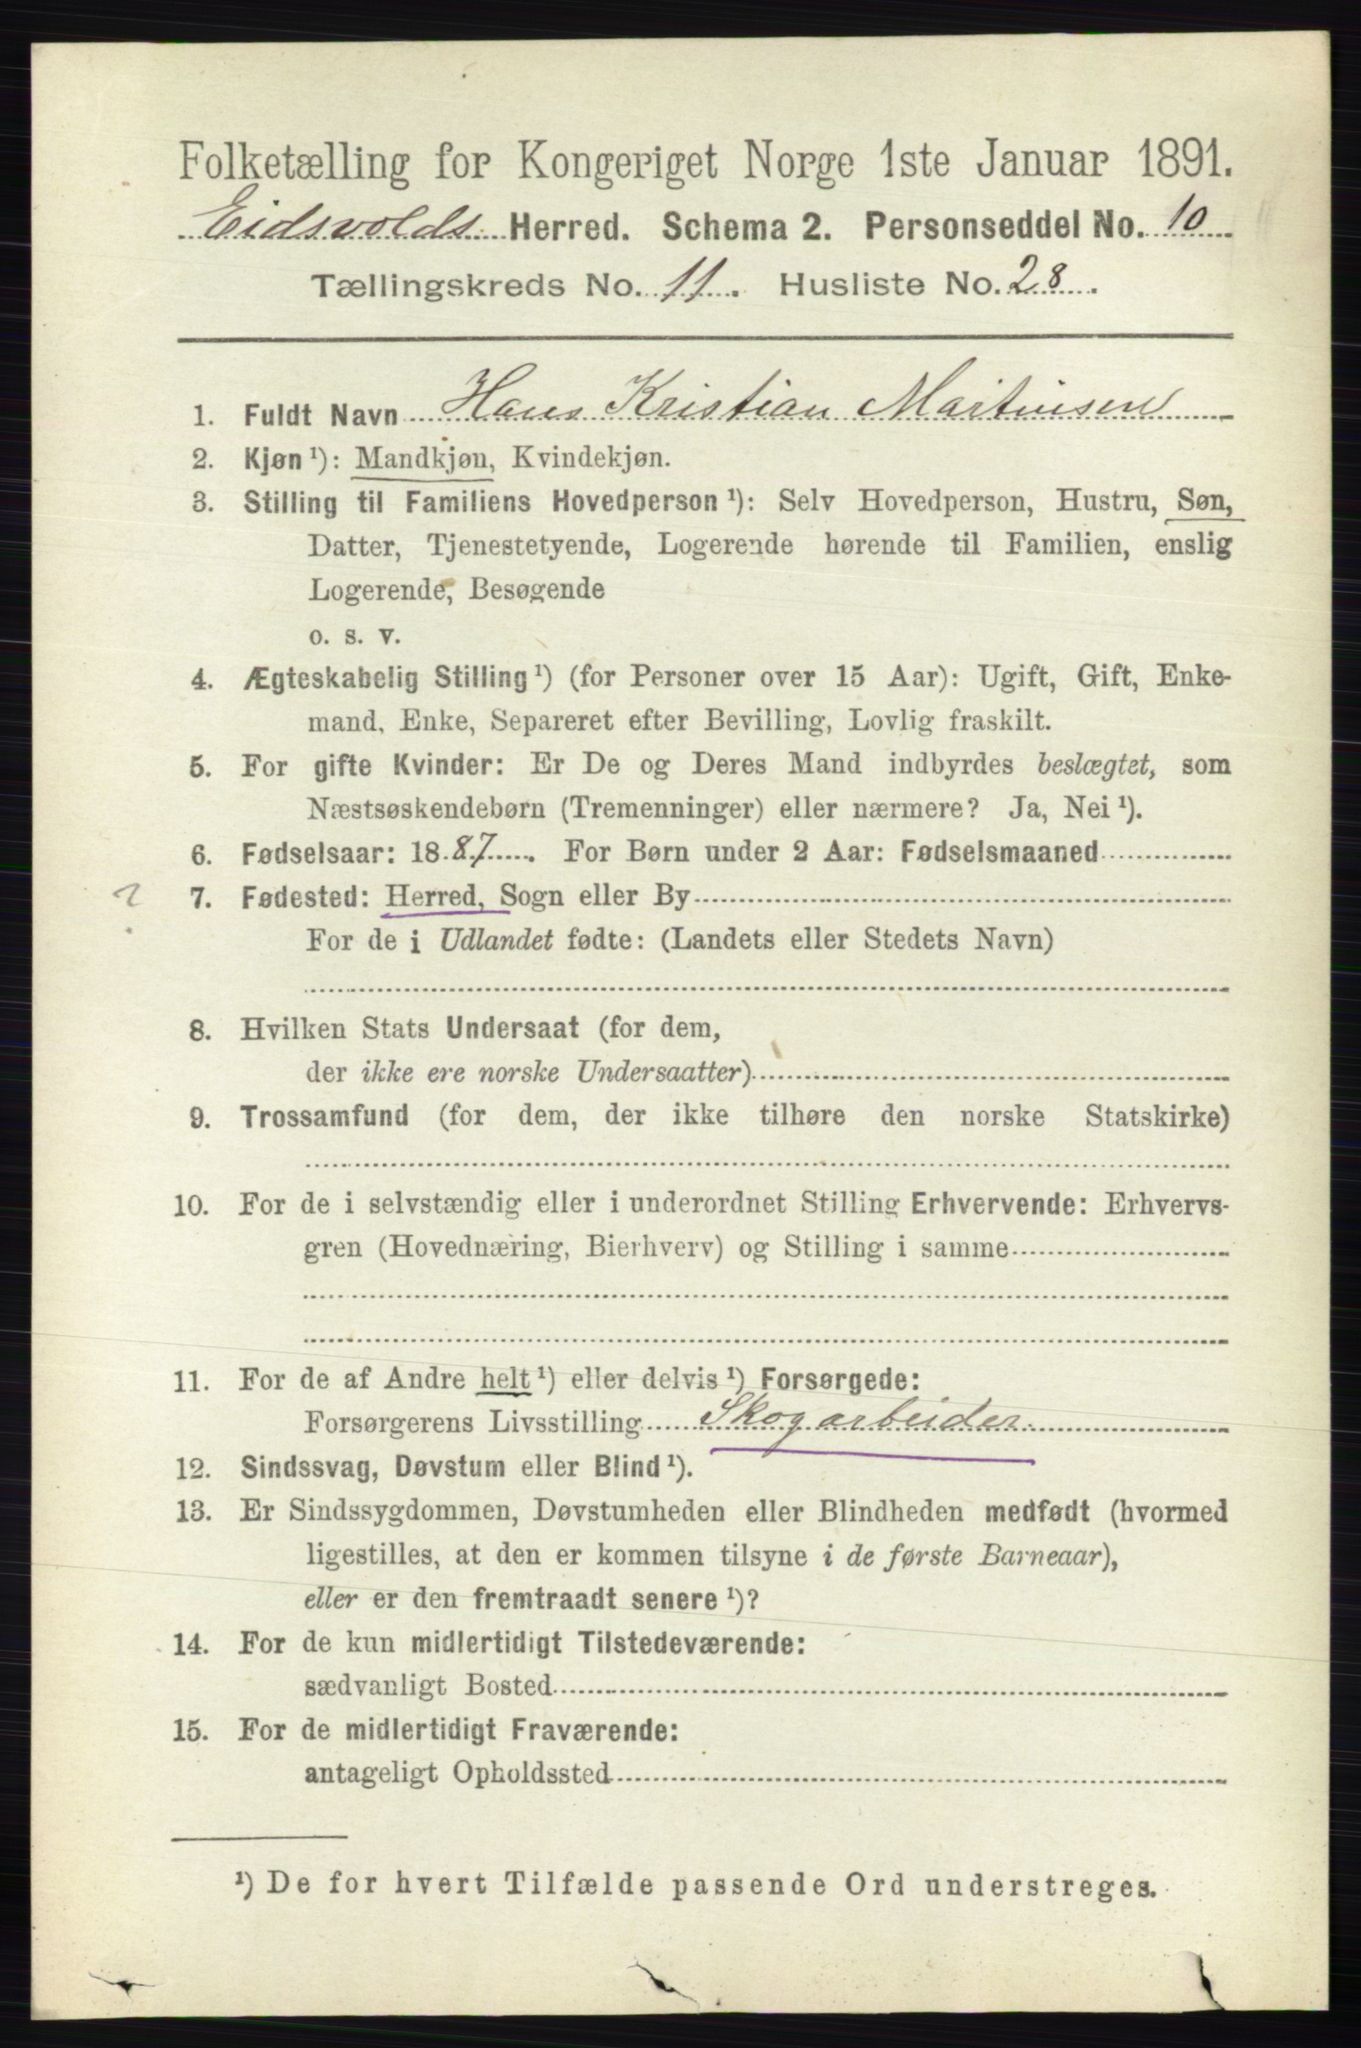 Folketælling for Kongeriget Norge 1ste Januar 1891.
Eidsvolds Herred. Schema 2. Personseddel No. 10
Tællingskreds No. 11. Husliste No. 28.
1. Fuldt Navn Hans Kristian Martinsen
2. Kjøn ¹): Mandkjøn, Kvindekjøn.
3. Stilling til Familiens Hovedperson ¹): Selv Hovedperson, Hustru, Søn,
Datter, Tjenestetyende, Logerende hørende til Familien, enslig
Logerende, Besøgende
o. s. v.
4. Ægteskabelig Stilling ¹) (for Personer over 15 Aar): Ugift, Gift, Enke-
mand, Enke, Separeret efter Bevilling, Lovlig fraskilt.
5. For gifte Kvinder: Er De og Deres Mand indbyrdes beslægtet, som
Næstsøskendebørn (Tremenninger) eller nærmere? Ja, Nei ¹).
6. Fødselsaar: 1887. For Børn under 2 Aar: Fødselsmaaned
? 7. Fødested: Herred, Sogn eller By
For de i Udlandet fødte: (Landets eller Stedets Navn)
8. Hvilken Stats Undersaat (for dem,
der ikke ere norske Undersaatter)
9. Trossamfund (for dem, der ikke tilhøre den norske Statskirke)
10. For de i selvstændig eller i underordnet Stilling Erhvervende: Erhvervs-
gren (Hovednæring, Bierhverv) og Stilling i samme
11. For de af Andre helt ¹) eller delvis ¹) Forsørgede:
Forsørgerens Livsstilling Skogarbeider
12. Sindssvag, Døvstum eller Blind ¹).
13. Er Sindssygdommen, Døvstumheden eller Blindheden medfødt (hvormed
ligestilles, at den er kommen tilsyne i de første Barneaar),
eller er den fremtraadt senere ¹)?
14. For de kun midlertidigt Tilstedeværende:
sædvanligt Bosted
15. For de midlertidigt Fraværende:
antageligt Opholdssted
¹) De for hvert Tilfælde passende Ord understreges.